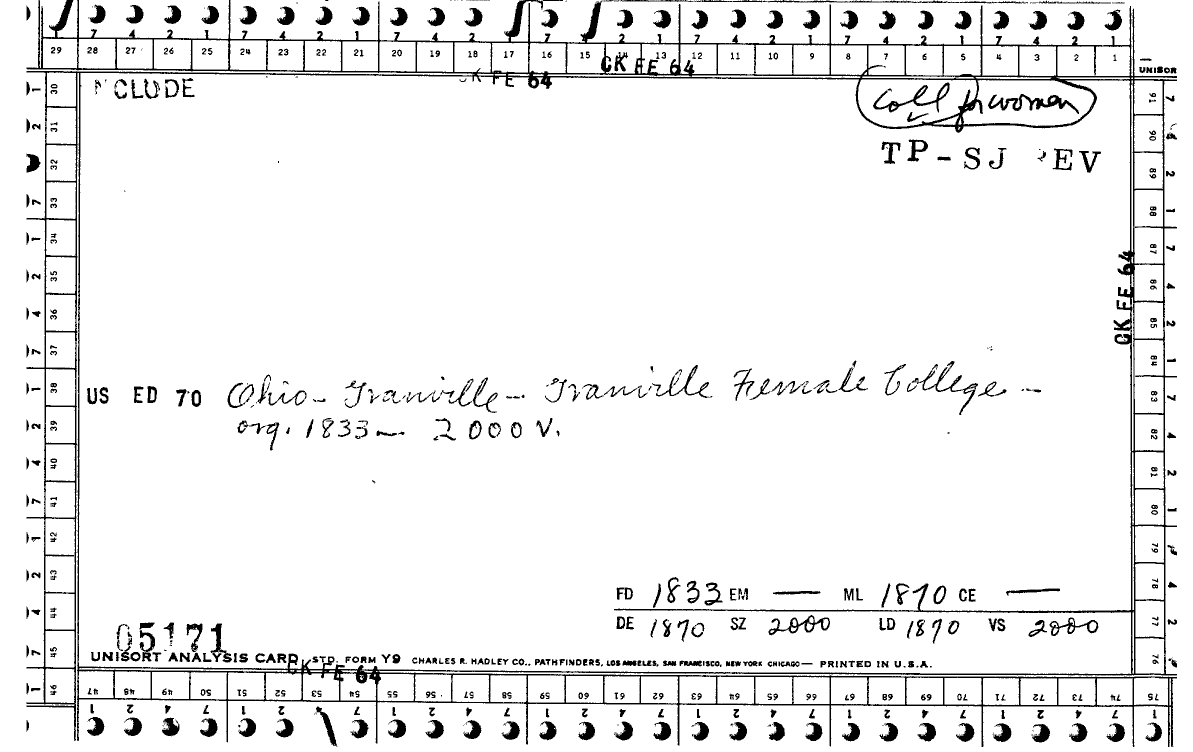 7 4 2 1 7 4 2 1 7 4 2 1 7 4 2 1 7 4 2 1 7 4 2 1 7 4 2 1
29 28 27 26 25 24 23 22 21 20 19 18 17 16 15 14 13 12 11 10 9 8 7 6 5 4 3 2 1
CK FE 64
CK FE 64
UNISORT
CLUDE
Coll for women
TP-SJ EV
CK FE 64
US ED 70 Ohio - Granville - Granville Female College -
org. 1833 - 2000 V.
FD 1833 EM — ML 1870 CE —
DE 1870 SZ 2000 LD 1870 VS 2000
05171
UNISORT ANALYSIS CARD STD. FORM Y9 CHARLES R. HADLEY CO., PATHFINDERS, LOS ANGELES, SAN FRANCISCO, NEW YORK CHICAGO — PRINTED IN U.S.A.
CK FE 64
30 31 32 33 34 35 36 37 38 39 40 41 42 43 44 45 46
91 90 89 88 87 86 85 84 83 82 81 80 79 78 77 76
47 48 49 50 51 52 53 54 55 56 57 58 59 60 61 62 63 64 65 66 67 68 69 70 71 72 73 74 75